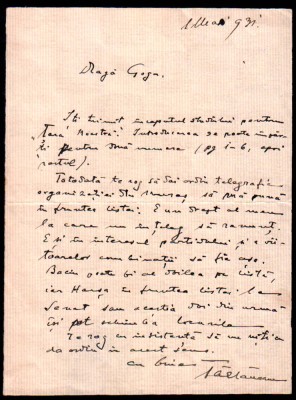 1 Mai 931
Dragă Goga,
Îți trimit începutul studiului pentru
"Țara Noastră". Introducerea se poate împăr-
ți pentru două numere (pg 1-6, apoi
restul).
Totodată te rog să dai ordin telegrafic
organizației din Mureș să mă pună
în fruntea listei. E un drept al meu
la care nu înțeleg să renunț.
E și în interesul partidului și a vii-
toarelor combinații să fiu ales.
Baciu poate fi al doilea pe listă,
iar Harșa în fruntea listei la
Senat sau aceștia doi din urmă
își pot schimba locurile.
Te rog cu insistență să nu uiți a
da ordin în acest sens.
cu bine
Tăslăuanu